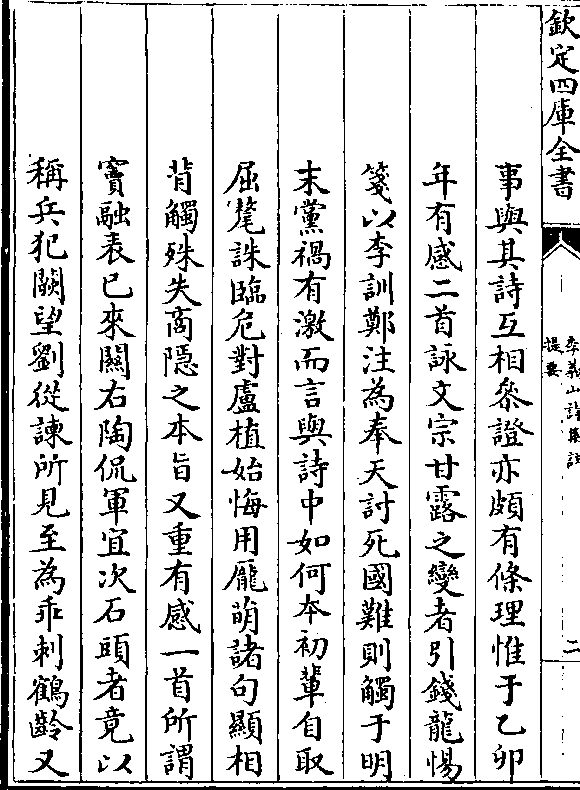 欽定四庫全書
李義山詩集註
提要
二
事與其詩互相參證亦頗有條理惟于乙卯
年有感二首詠文宗甘露之變者引錢龍惕
箋以李訓鄭注為奉天討死國難則觸于明
末黨禍有激而言與詩中如何本初輩自取
屈氂誅臨危對盧植始悔用龐萌諸句顯相
背觸殊失商隱之本旨又重有感一首所謂
竇融表已來關右陶侃軍宜次石頭者竟以
稱兵犯闕望劉從諫所見至為乖剌鶴齡又